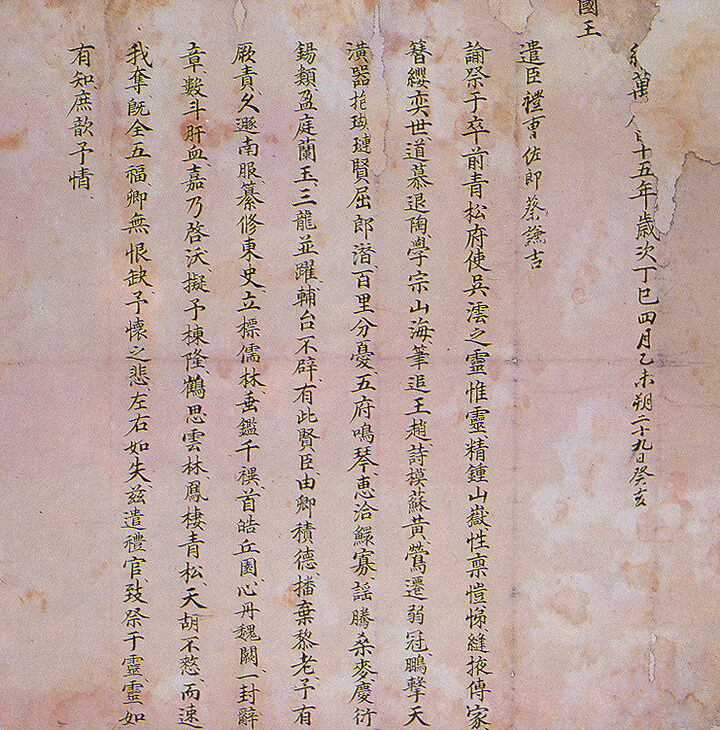 萬十五年歲次丁巳四月乙未朔二十九日癸亥
國王
遣臣禮曹佐郎蔡謙吉
諭祭于卒前青松府使吳澐之靈惟靈精鍾山嶽性禀愷悌縫掖傳家
簪纓奕世道慕退陶學宗山海筆追王趙詩模蘇黃鶯遷弱冠鵬擊天
潢器抱瑚璉賢屈郎潛百里分憂五府鳴琴惠洽鰥寡謠騰桑麥慶衍
錫類盈庭蘭玉三龍並躍輔台不辟有此賢臣由卿積德播棄黎老予有
厥責久遯南服纂修東史立標儒林垂鑑千禩首皓丘園心丹魏闕一封辭
章數斗肝血嘉乃啓沃擬予棟隆鶴思雲林鳳棲青松天胡不憗而速
我奪旣全五福卿無恨缺予懷之悲左右如失玆遣禮官致祭于靈靈如
有知庶歆予情